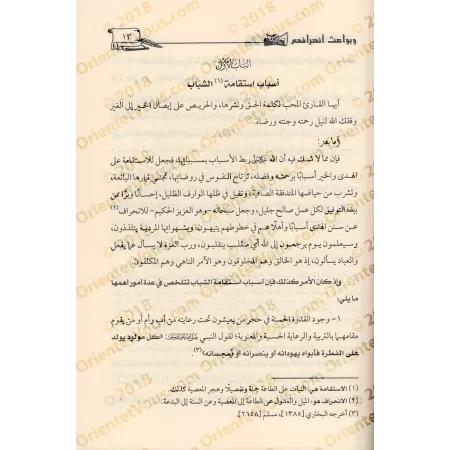 وبواعث انحرافهم
١٣
الباب الأول
أسباب استقامة (١) الشباب
أيها القارئ المحب لكلمة الحق ونشرها، والحريص على إيصال الخير إلى الغير
وفقك الله لنيل رحمته وجنته ورضاه.
أما بعد:
فإن مما لا شك فيه أن الله ربط الأسباب بمسبباتها، فجعل للاستقامة على
الهدى والخير أسبابًا برحمته وفضله، ترتاح النفوس في روضاتها، تجني ثمارها اليانعة،
وتشرب من حياضها المتدفقة الصافية، وتقيل في ظلها الوارف الظليل، إحسانًا وبرًّا ممن
بيده التوفيق لكل عمل صالح جليل، وجعل سبحانه -وهو العزيز الحكيم- للانحراف (٢)
عن سنن الهدى أسبابًا وأهلًا هم في خطوطهم يتيهون، وبشهواتها المردية يتلذذون،
وسيعلمون يوم يرجعون إلى الله أي منقلب ينقلبون، ورب العزة لا يسأل عما يفعل
والعباد يسألون، إذ هو الخالق وهم المخلوقون وهو الآمر الناهي وهم المكلفون.
وإذ كان الأمر كذلك فإن أسباب استقامة الشباب تتلخص في عدة أمور أهمها
ما يلي:
١- وجود القدوة الحسنة في حجر من يعيشون تحت رعايته من أب وأم أو من يقوم
مقامهما بالتربية والرعاية الحسية والمعنوية؛ لقول النبي ﷺ: «كل مولود يولد
على الفطرة فأبواه يهودانه أو ينصرانه أو يمجسانه» (٣).
(١) الاستقامة هي: الثبات على الطاعة جملة وتفصيلًا وهجر المعصية كذلك.
(٢) الانحراف هو: الميل والعدول عن الطاعة إلى المعصية وعن السنة إلى البدعة.
(٣) أخرجه البخاري [١٣٨٥]، مسلم [٢٦٥٨].
© 2018
OrientetVous.com